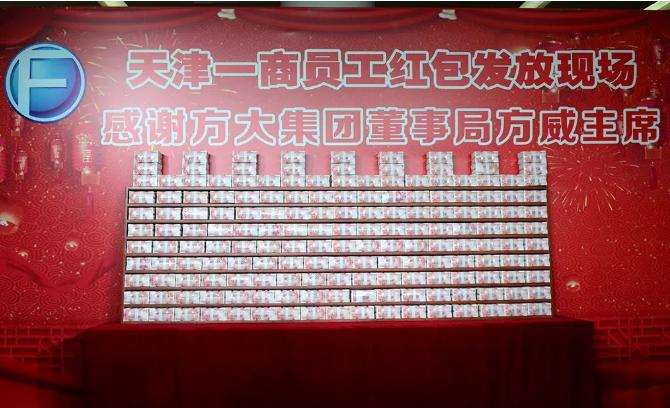 天津一商员工红包发放现场
感谢方大集团董事局方威主席
F